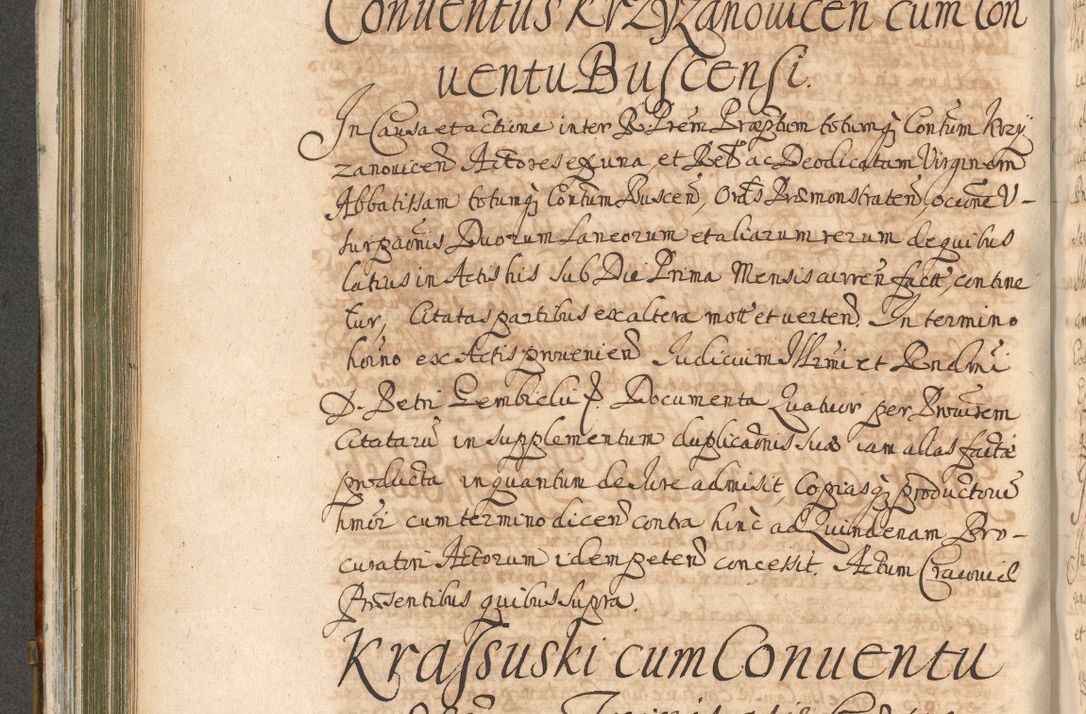 Conventus Krzyzanovicen cum Con
ventu Buscensi.
In Causa et actione inter R. Prem Præptum totumq Contum Krzy
zanovicen Actores ex una, et Relt ac Deo dicatam Virginem
Abbatissam totumq Contum Buscen, Ordis Præmonstraten, occne U-
surpaonis Duorum Laneorum et aliarum rerum de quibus
latius in Actis his sub Die Prima Mensis curren facte, contine
tur, Citatas partibus ex altera motte et verten. In termino
horno ex Actis provenien Judicium Illrmi et Rndmi
D. Petri Gembicki P. Documenta Quatuor per Procurem
Citataru in supplementum duplicaonis suæ iam alias facta
producta in quantum de Iure admisit, Copiasq productoru
hmoi cum termino dicen contra hinc ad Quindenam Pro-
curatori Actorum idem peten concessit. Actum Cracoviæ
Præsentibus quibus supra.
Krassuski cum Conventu